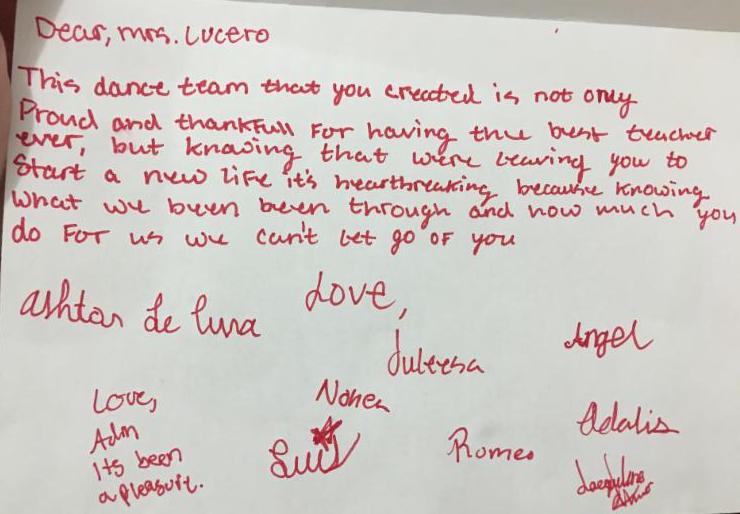 Dear, mrs. Lucero
This dance team that you created is not only
Proud and thankfull For having the best teacher
ever, but knowing that we're leaving you to
Start a new life it's heartbreaking because knowing
what we been been through and how much you
do For us we can't let go of you
Love,
ashtan de luna
Juleesa
Angel
Love,
Adin
Its been
a pleasure.
Luis
Romeo
Adalis
Jacqueline